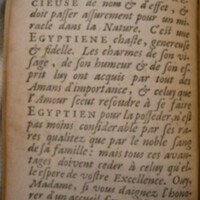 CIEUSE de nom & d'effet, &
doit passer assurement pour un mi-
racle dans la Nature. C'est une
EGYPTIENE chaste, genereuse
& fidelle. Les charmes de son vi-
sage, de son humeur & de son es-
prit luy ont acquis par tout des
Amans d'importance, & celuy que
l'Amour sceut resoudre à se faire
EGYPTIEN pour la posseder, n'est
pas moins considerable par ses ra-
res qualitez que par le noble sang
de sa famille: mais tous ces avan-
tages doivent ceder à celuy qu'el-
le espere de vostre Excellence. Ouy,
Madame, si vous daignez l'hono-
rer d'un accueil